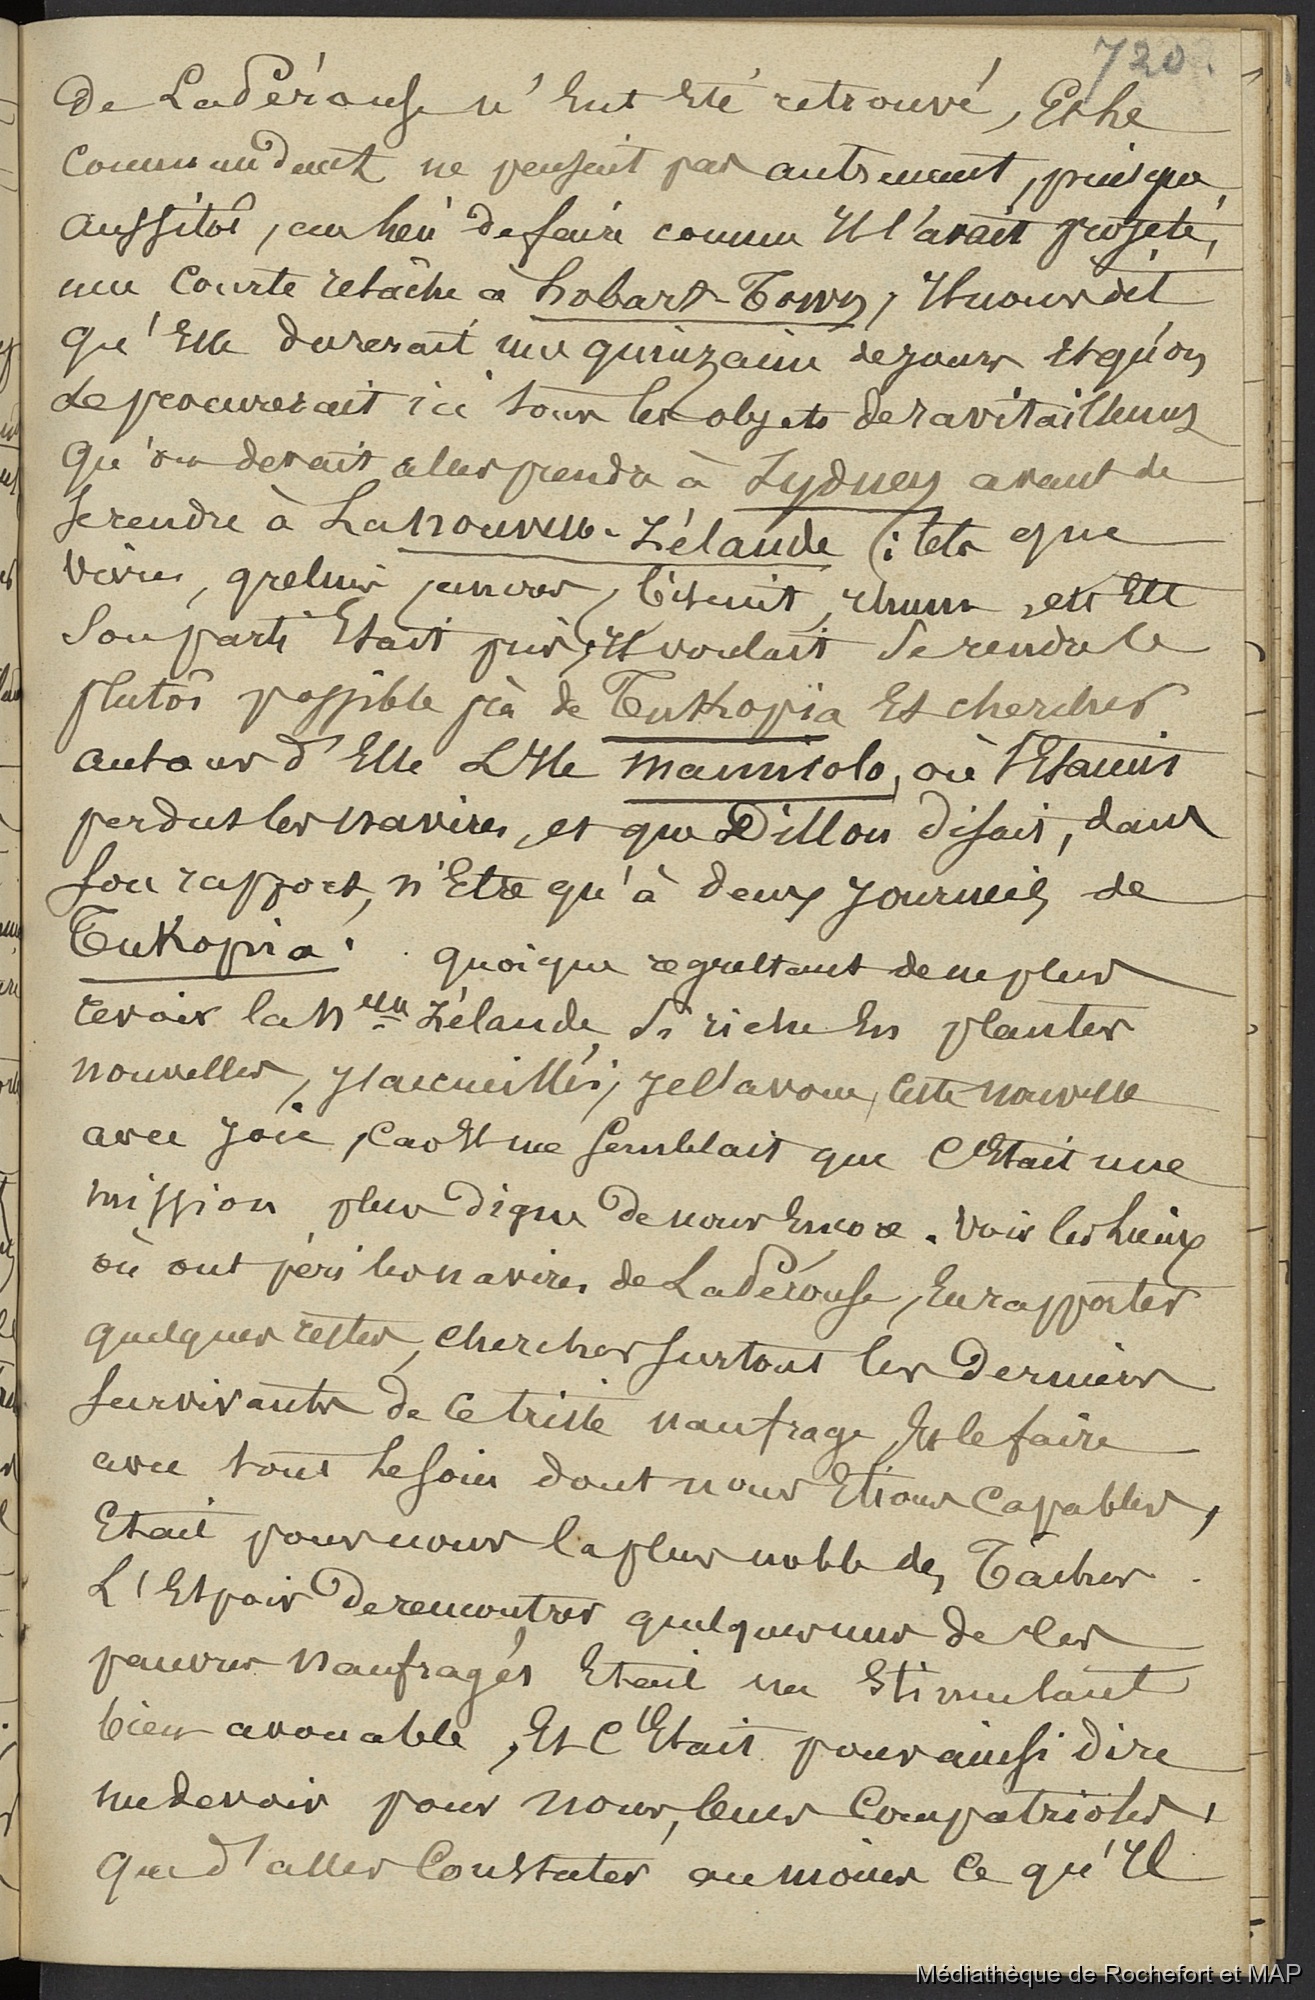 720.
De LaPérouse n'Eut Eté retrouvé, Et Le
commandant ne pensait pas autrement, puisque
aussitôt, au lieu de faire comme Il l'avait projeté,
une Courte relâche à hobart-Town, Il nous dit
qu'Elle durerait une quinzaine de jours Et qu'on
se procurerait ici tous les objets de ravitaillement
qu'on devait aller prendre à Sydney avant de
se rendre à La nouvelle-Zélande (: tels que
vivres, grelins, ancres, biscuit, rhum,
Son parti Etait pris, Il voulait Se rendre le
plutôt possible près de Tukopia Et chercher
autour d'Elle L'Ile mannicolo, où S'Etaient
perdus les navires, et que Dillon disait, dans
son rapport, n'Etre qu'à deux journées de
Tukopia. quoique regrettant de ne plus
revoir la Nelle Zélande, Si riche En plantes
nouvelles, J'accueillis, je l'avoue, cette nouvelle
avec joie, car Il me semblait que C'Etait une
mission plus digne de nous Encore. Voir les lieux
où ont péri les navires de LaPérouse, En rapporter
quelques restes, chercher surtout les derniers
survivants de ce triste naufrage, Et le faire
avec tout le soin dont nous Etions capables,
Etait pour nous la plus noble des Tâches.
L'Espoir de rencontrer quelques uns de ces
pauvres naufragés Etait un Stimulant
bien avouable, Et C'Etait pour ainsi dire
un devoir pour nous, leurs Compatriotes,
que d'aller Constater au moins ce qu'Il
Médiathèque de Rochefort et MAP